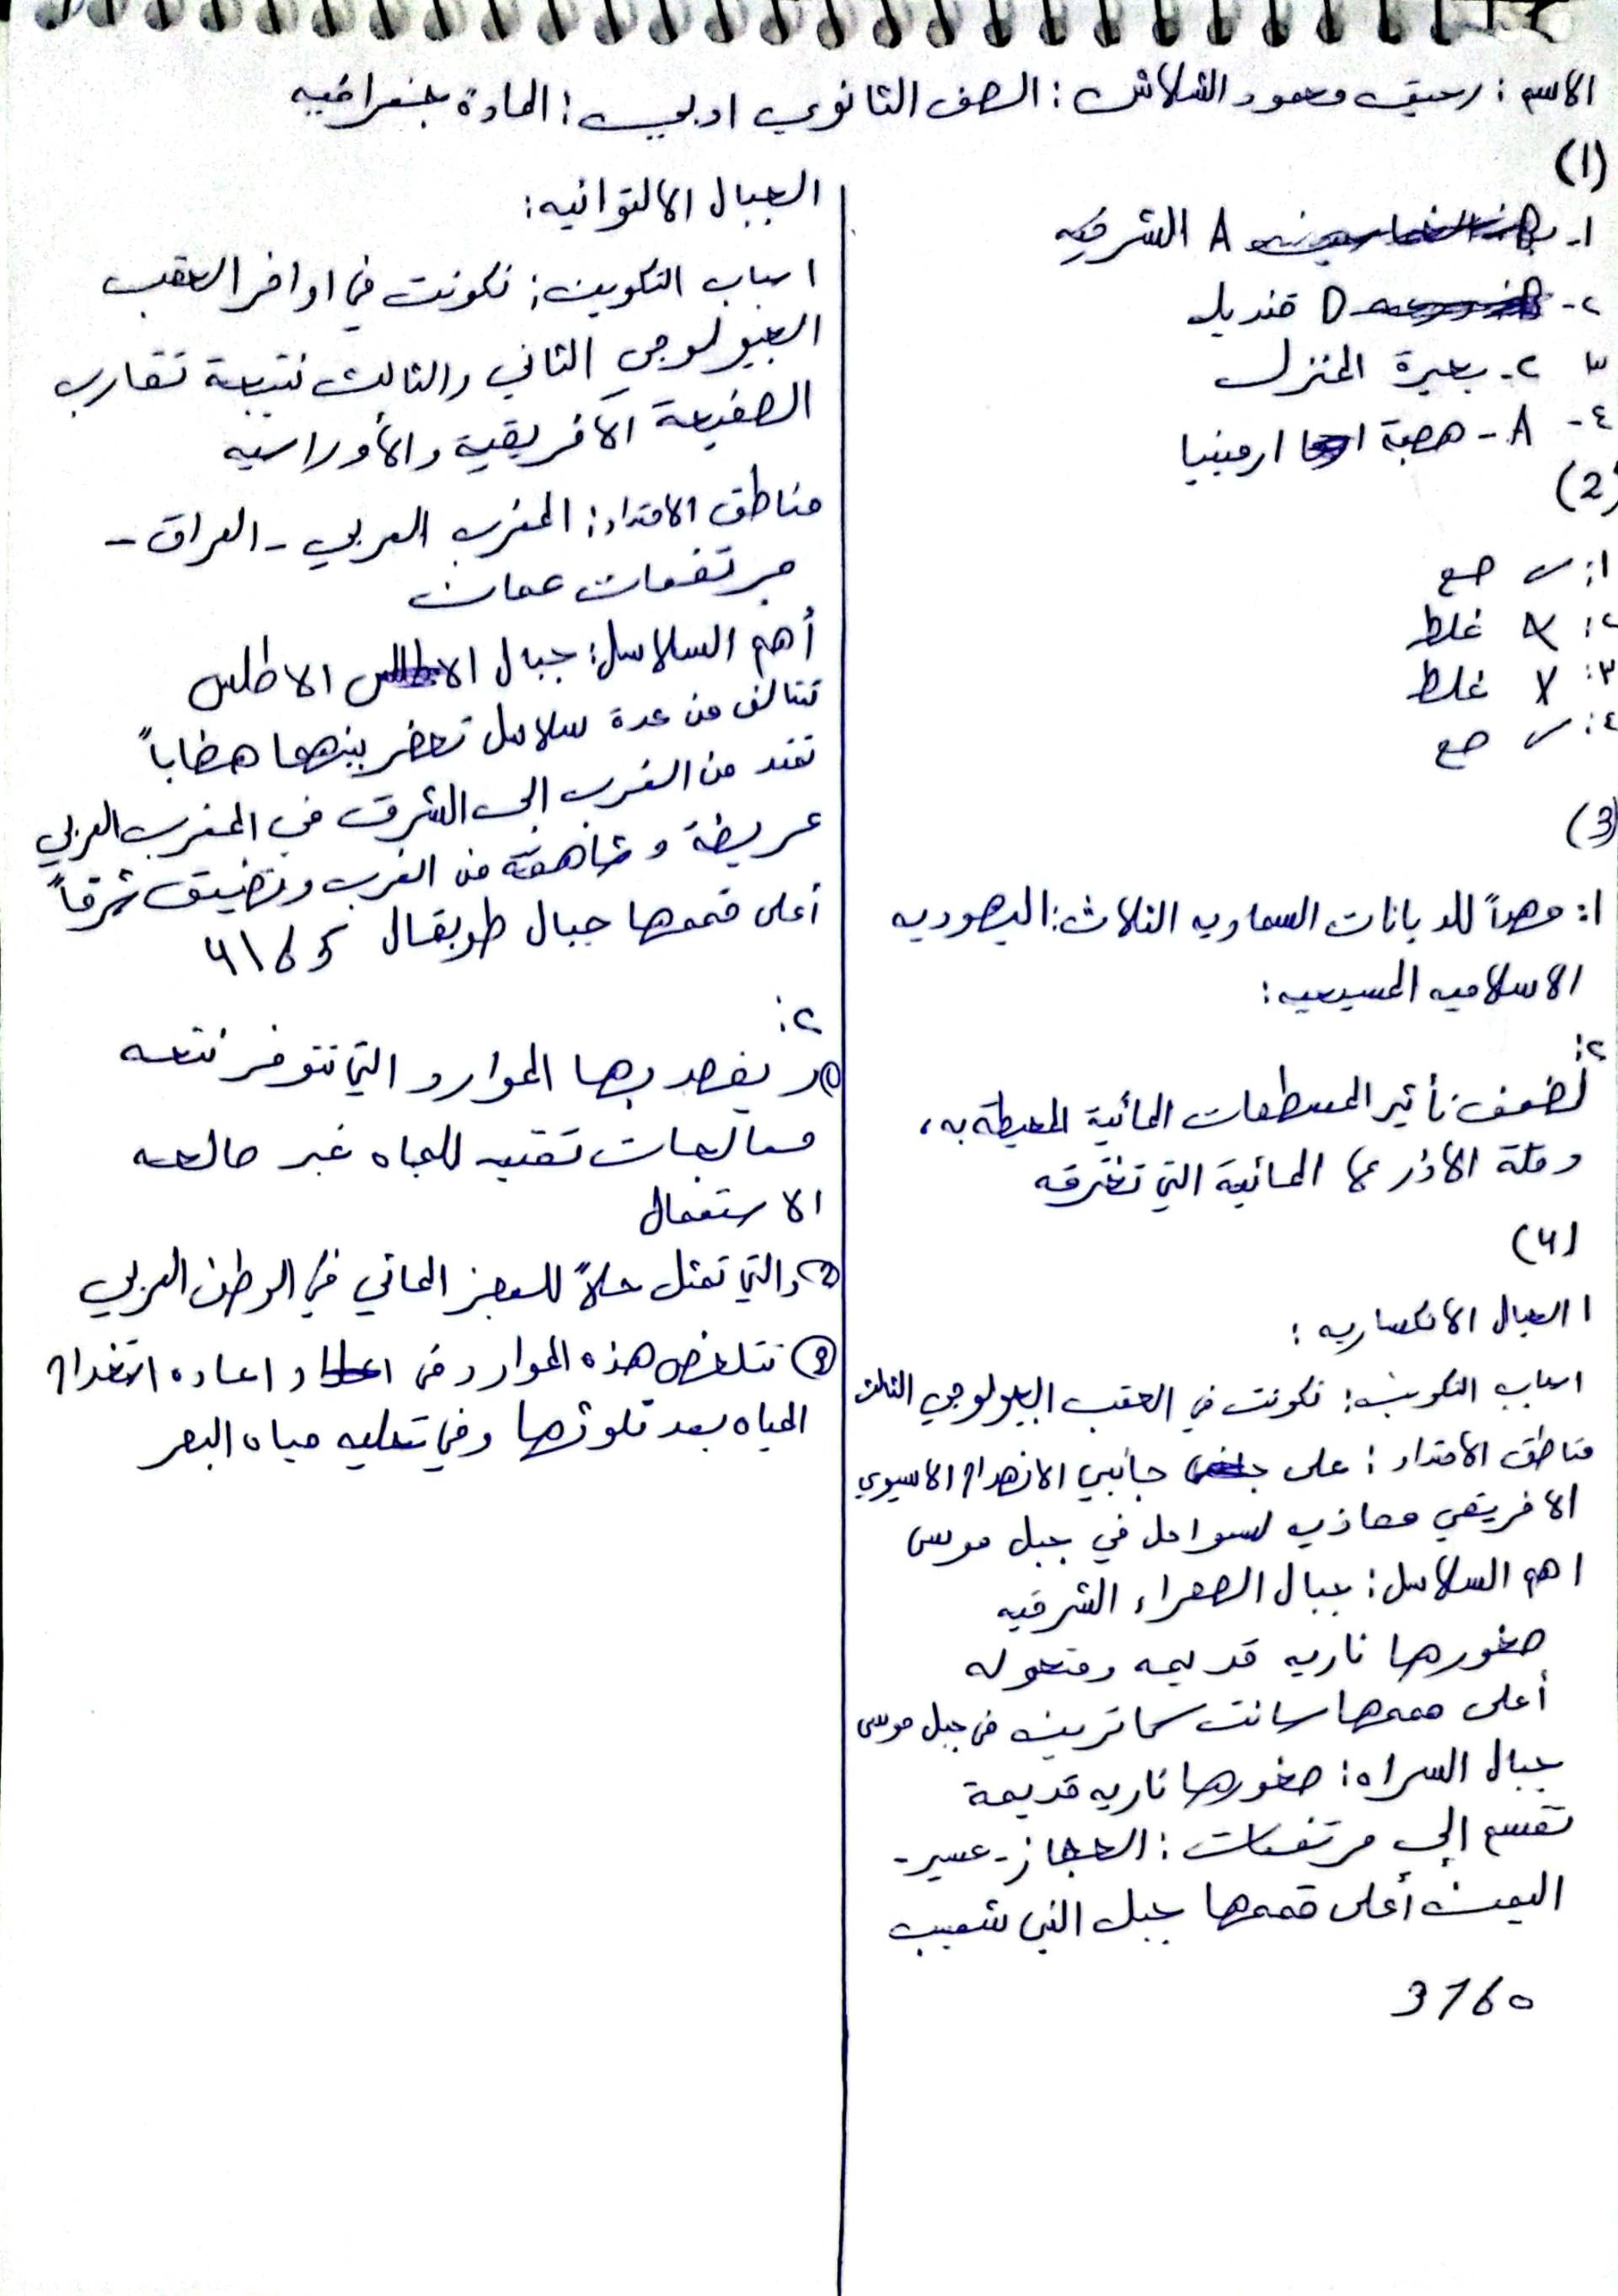 الاسم : رحيق محمود الشلاش : الصف الثانوي ادبي : المادة جغرافيه
(1)
١- A الشرقيه
٢- D قنديل
٣ c- بحيرة المنزل
٤- A- هضبة ارمينيا
(2)
١: ✓ صح
٢: X غلط
٣: X غلط
٤: ✓ صح
(3)
١: مهداً للديانات السماويه الثلاث: اليهوديه
الاسلاميه المسيحيه:
٢:
لضعف تأثير المسطحات المائية المحيطة به،
وقلة الاذرع المائية التي تخترقه
(4)
١ الجبال الانكساريه :
اسباب التكوين: تكونت في الحقب الجيولوجي الثالث
مناطق الامتداد : على جانبي الانهدام الاسيوي
الافريقي محاذيه لسواحل في جبل موسى
اهم السلاسل: جبال الصحراء الشرقيه
صخورها ناريه قديمه ومتحوله
أعلى قممها سانت كاترين في جبل موسى
جبال السراه: صخورها ناريه قديمة
تقسم إلى مرتفعات : الحجاز - عسير -
اليمن أعلى قممها جبل النبي شعيب
3760
الجبال الالتوائيه:
اسباب التكوين: تكونت في اواخر الحقب
الجيولوجي الثاني والثالث نتيجة تقارب
الصفيحة الافريقية والأوراسيه
مناطق الامتداد: المغرب العربي - العراق -
مرتفعات عمان
أهم السلاسل: جبال الاطلس
تتالف من عدة سلاسل تحصر بينهما هضاباً
تمتد من الغرب إلى الشرق في المغرب العربي
عريضة وشاهقة من الغرب وتضيق شرقاً
أعلى قممها جبال طوبقال 4165
٢:
① ويقصد بها الموارد التي تتوفر نتيجه
معالجات تقنيه للمياه غير صالحه
الاستعمال
② والتي تمثل حلاً للعجز المائي في الوطن العربي
③ تتلخص هذه الموارد في واعاده استخدام
المياه بعد تلوثها وفي تحليه مياه البحر